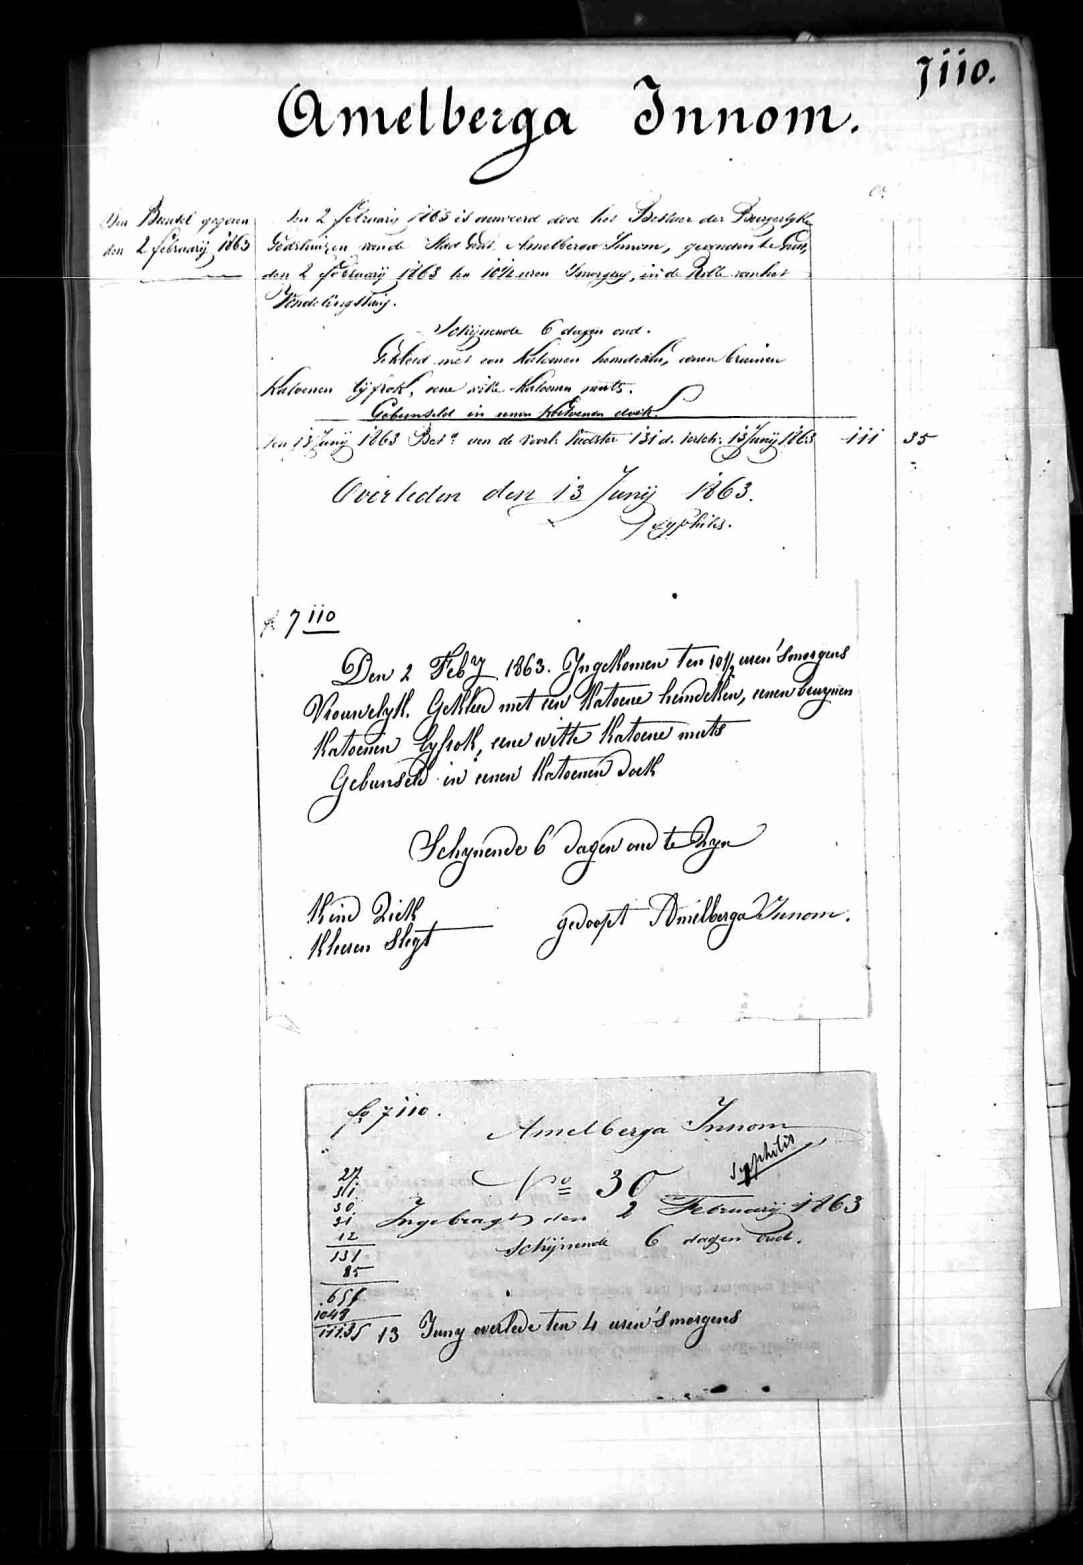 7110.
Amelberga Innom.
Den Bundel gegeven
den 2 februarij 1863
Den 2 februarij 1863 is aenveerd door het Bestuer der Burgerlyke
Godshuizen van de Stad Gent Amelberga Innom, gevonden te Gent,
den 2 februarij 1863 ten 10½ uren Smorgens, in de Rolle van het
Vondelingshuis.
Schijnende 6 dagen oud.
Gekleed met een Katoenen hemdeken, eenen bruinen
Katoenen lijfrok, eene witte Katoenen muts.
Gebunseld in eenen Katoenen doek.
den 13 Junij 1863 Bet. aen de voorz. Voedster 131 d. versch. 13 Junij 1863 111 35
Overleden den 13 Junij 1863.
Syphilis.
fo 7110
Den 2 Feby 1863. Ingekomen ten 10½ uren 'Smorgens
Vrouwelyk. Gekleed met een Katoene hemdeken, eenen bruynen
Katoenen Lyfrok, eene witte Katoene muts
Gebunseld in eenen Katoenen doek
Schynende 6 dagen oud te Zyn
Kind Ziek
Kleeren Slegt
gedoopt Amelberga Innom.
fo 7110.
Amelberga Innom
Syphilis
No 30
27
31
30
31
12
131
85
655
1048
11135
Ingebragt den 2 Februarij 1863
Schijnende 6 dagen oud.
13 Juny overlede ten 4 uren 'Smorgens